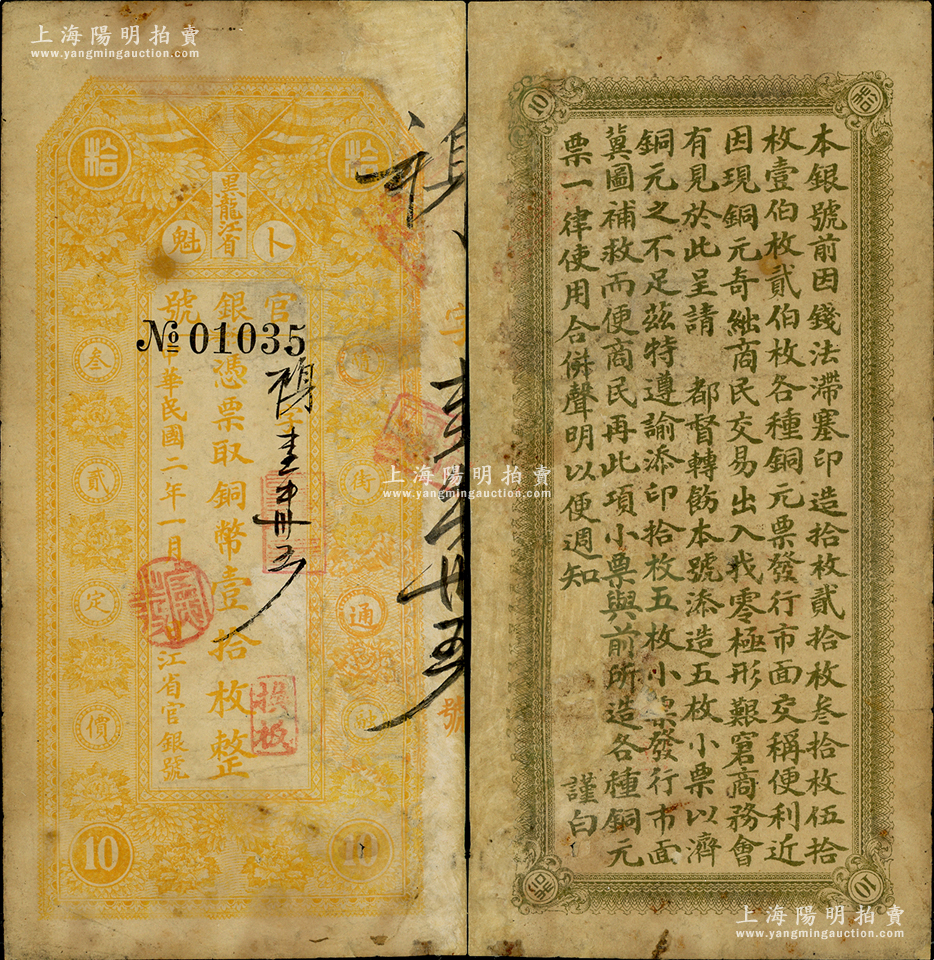 上海陽明拍賣
www.yangmingauction.com
拾
拾
黑龍江省
卜
魁
官
銀
號
憑票取銅幣壹拾枚整
№01035
華民國二年一月
江省官銀號
街
通
融
叁
貳
定
價
字
號
10
10
上海陽明拍賣
www.yangmingauction.com
10
拾
本銀號前因錢法滯塞印造拾枚貳拾枚叁拾枚伍拾
枚壹伯枚貳伯枚各種銅元票發行市面交稱便利近
因現銅元奇絀商民交易出入找零極形艱窘商務會
有見於此呈請 都督轉飭本號添造五枚小票以濟
銅元之不足茲特遵諭添印拾枚五枚小票發行市面
冀圖補救而便商民再此項小票與前所造各種銅元
票一律使用合併聲明以便週知
謹白
拾
10
上海陽明拍賣
www.yangmingauction.com